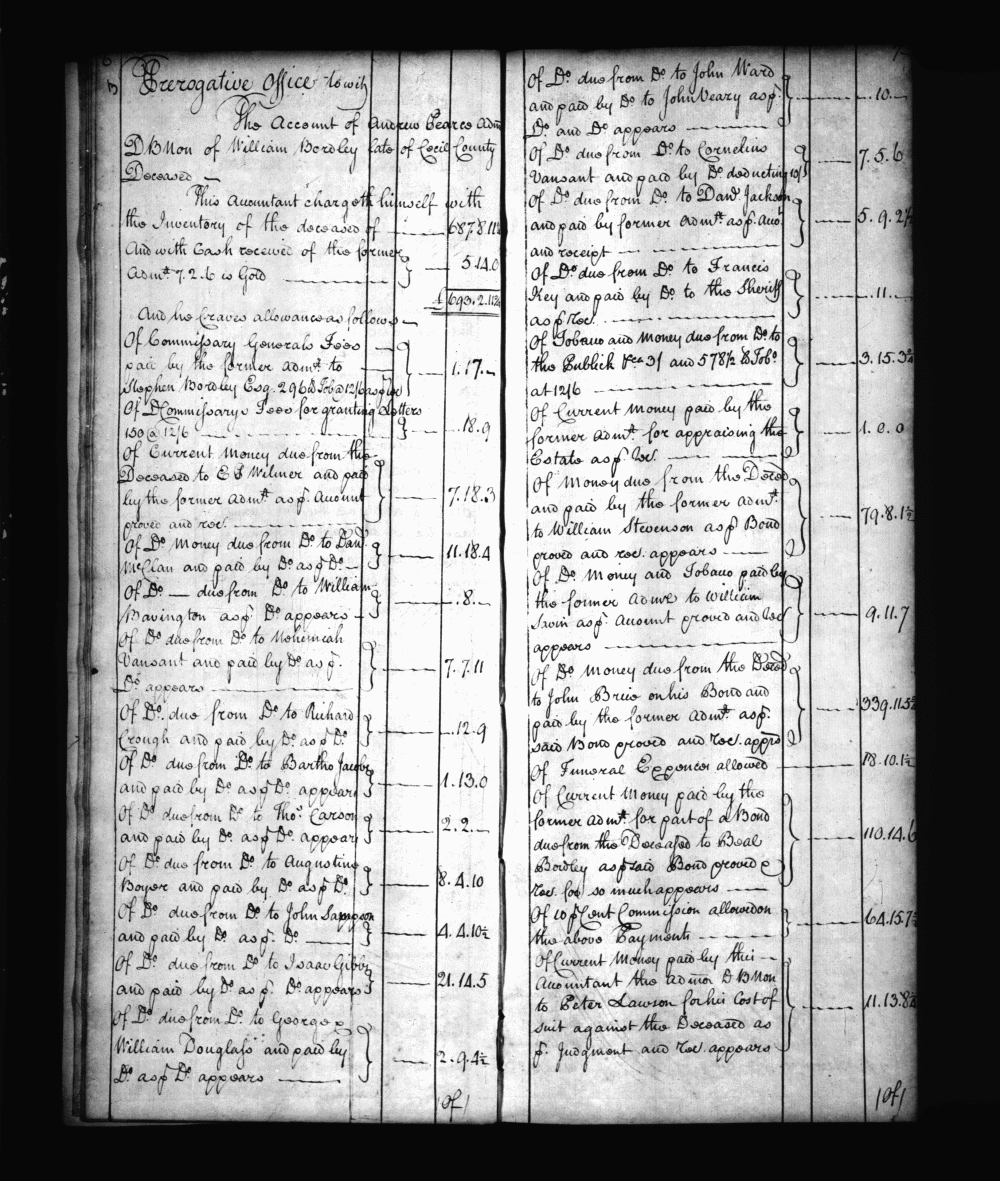 Prerogative Office to wit
The Account of Andrew Pearce Adm.
D B Non of William Bordley late of Cecil County
Deceased —
This Accountant chargeth himself with
the Inventory of the deceased of 687.8.11½
And with Cash received of the former
Admt. 7.2.6 is Gold 5.14.0
£ 693.2.11½
And he Craves allowance as follows —
Of Commissary Generals Fees
paid by the former Admt. to
Stephen Bordley Esq. 296 lb Tob @ 12/6 as p Rec 1.17.-
Of D Commissarys Fees for granting Letters
150 @ 12/6 .18.9
Of Current Money due from the
Deceased to E S Wilmer and paid
by the former Admt. as p. Account
proved and rec. 7.18.3
Of Do. Money due from Do. to Danl.
McClan and paid by Do. as p Do. — 11.18.4
Of Do. — due from Do. to William
Bavington as p. Do. appears — .8.-
Of Do. due from Do. to Nehemiah
Vansant and paid by Do. as p.
Do. appears 7.7.11
Of Do. due from Do. to Richard
Crough and paid by Do. as p Do. .12.9
Of Do. due from Do. to Bartho Jacobs
and paid by Do. as p Do. appears 1.13.0
Of Do. due from Do. to Thos. Carson
and paid by Do. as p Do. appears 2.2.-
Of Do. due from Do. to Augustine
Boyer and paid by Do. as p Do. 8.4.10
Of Do. due from Do. to John
and paid by Do. as p. Do. 4.4.10½
Of Do. due from Do. to Isaac Gibbs
and paid by Do. as p. Do. appears 21.14.5
Of Do. due from Do. to George &
William Douglass and paid by
Do. as p Do. appears 2.9.4½
Of Do. due from Do. to John Ward
and paid by Do. to John Veary as p
Do. and Do. appears .10.-
Of Do. due from Do. to Cornelius
Vansant and paid by Do. deducting 10/ 7.5.6
Of Do. due from Do. to Danl. Jackson
and paid by former Admt. as p. Acco.
and receipt 5.9.2½
Of Do. due from Do. to Francis
Key and paid by Do. to the Sheriff
as p Rec. .11.-
Of Tobacco and Money due from Do. to
the Publick 3/ and 578½ lb Tobo.
at 12/6 3.15.3½
Of Current Money paid by the
former Admt. for appraising the
Estate as p. Rec. 1.0.0
Of Money due from the Deced
and paid by the former Admt.
to William Stevenson as p Bond
proved and rec. appears 79.8.1½
Of Do. Money and Tobacco paid by
the former Admt. to William
Savin as p. Account proved and Rec
appears 9.11.7
Of Do. Money due from the Deced
to John Brice on his Bond and
paid by the former Admt. as p.
said Bond proved and rec. apprs 339.11.5½
Of Funeral Expences allowed 18.10.1½
Of Current Money paid by the
former Admt. for part of a Bond
due from the Deceased to Beal
Bordley as p said Bond proved &
Rec. for so much appears 110.14.6
Of 10 p Cent Commission allowed on
the above Payments 64.15.7½
Of Current Money paid by this
Accountant the Admor D B Non
to Peter Lawson for his Cost of
suit against the Deceased as
p. Judgment and rec. appears 11.13.8½